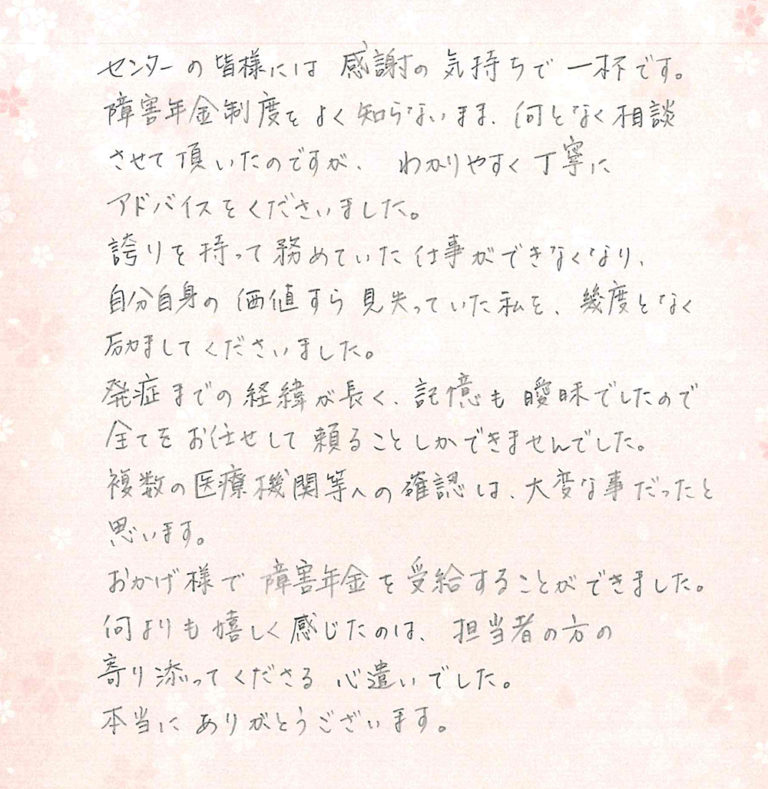 センターの皆様には感謝の気持ちで一杯です。
障害年金制度をよく知らないまま、何となく相談
させて頂いたのですが、わかりやすく丁寧に
アドバイスをくださいました。
誇りを持って務めていた仕事ができなくなり、
自分自身の価値すら見失っていた私を、幾度となく
励ましてくださいました。
発症までの経緯が長く、記憶も曖昧でしたので
全てをお任せして頼ることしかできませんでした。
複数の医療機関等への確認は、大変な事だったと
思います。
おかげ様で障害年金を受給することができました。
何よりも嬉しく感じたのは、担当者の方の
寄り添ってくださる心遣いでした。
本当にありがとうございます。